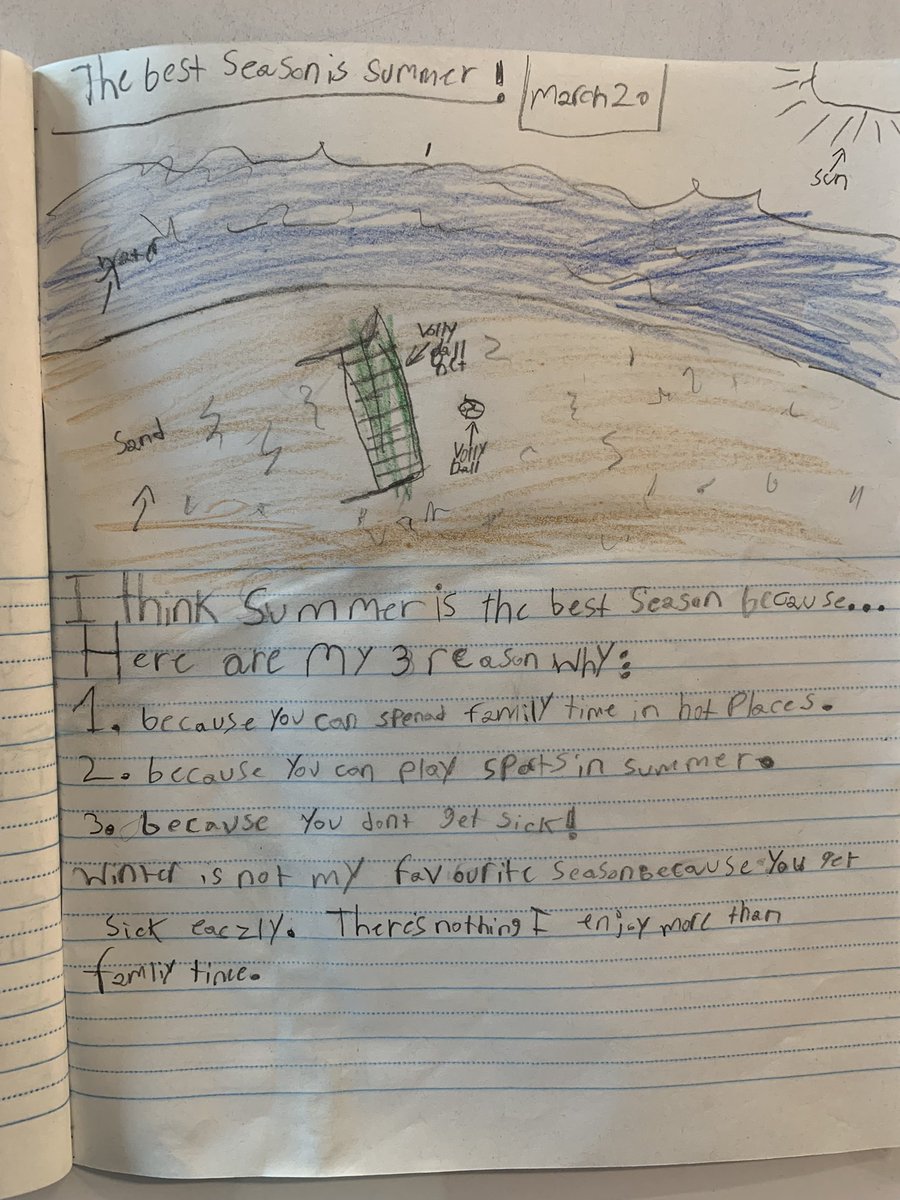 The best Season is summer!
March 20
sun
Volly
ball
net
Sand
Volly
ball
I think Summer is the best season because...
Here are my 3 reason why:
1. because you can spenad family time in hot places.
2. because you can play sports in summer.
3. because you dont get sick!
Winter is not my favourite season because you get
sick eaczly. There's nothing I enjoy more than
famliy time.